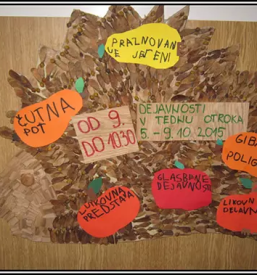 PRAZNOVAN
JE JESENI
ČUTNA
POT
OD 9.
DO 10.30
DEJAVNOSTI
V TEDNU OTROKA
5. - 9. 10 2015
GIB
POLIG
LUTKOVNA
PREDSTAVA
GLASBENE
DEJAVNOSTI
LIKOVN
DELAVN